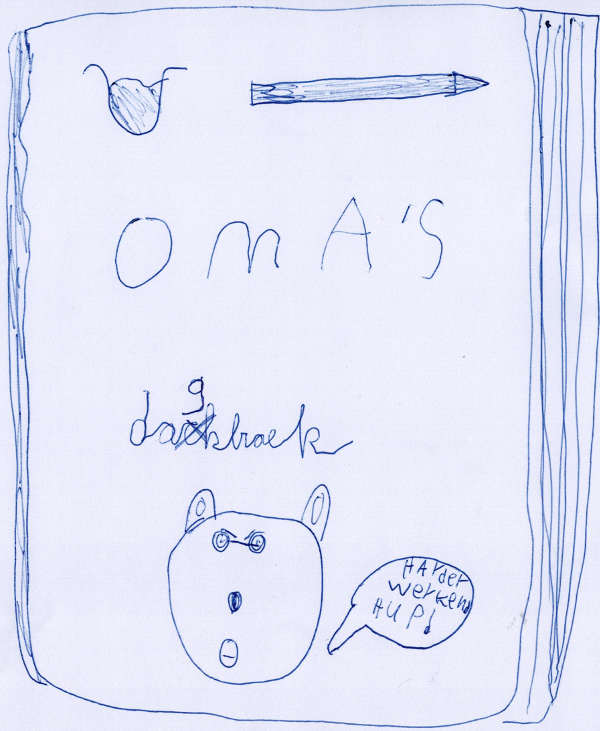 OMA'S
dagboek
HARder
werken
HUP!